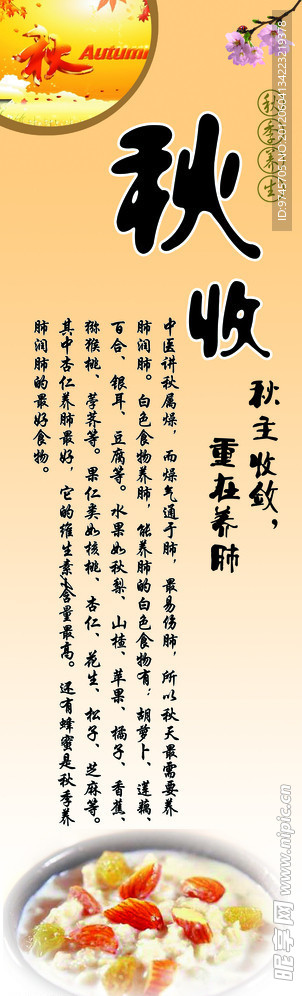 秋 Autumn
秋季养生
秋收
秋主收敛，
重在养肺
中医讲秋属燥，而燥气通于肺，最易伤肺，所以秋天最需要养
肺润肺。白色食物养肺，能养肺的白色食物有：胡萝卜、莲藕、
百合、银耳、豆腐等。水果如秋梨、山楂、苹果、橘子、香蕉、
猕猴桃、荸荠等。果仁类如核桃、杏仁、花生、松子、芝麻等。
其中杏仁养肺最好，它的维生素A含量最高。还有蜂蜜是秋季养
肺润肺的最好食物。
昵享网 www.nipic.cn
ID:9745705 NO:20120604134223219378